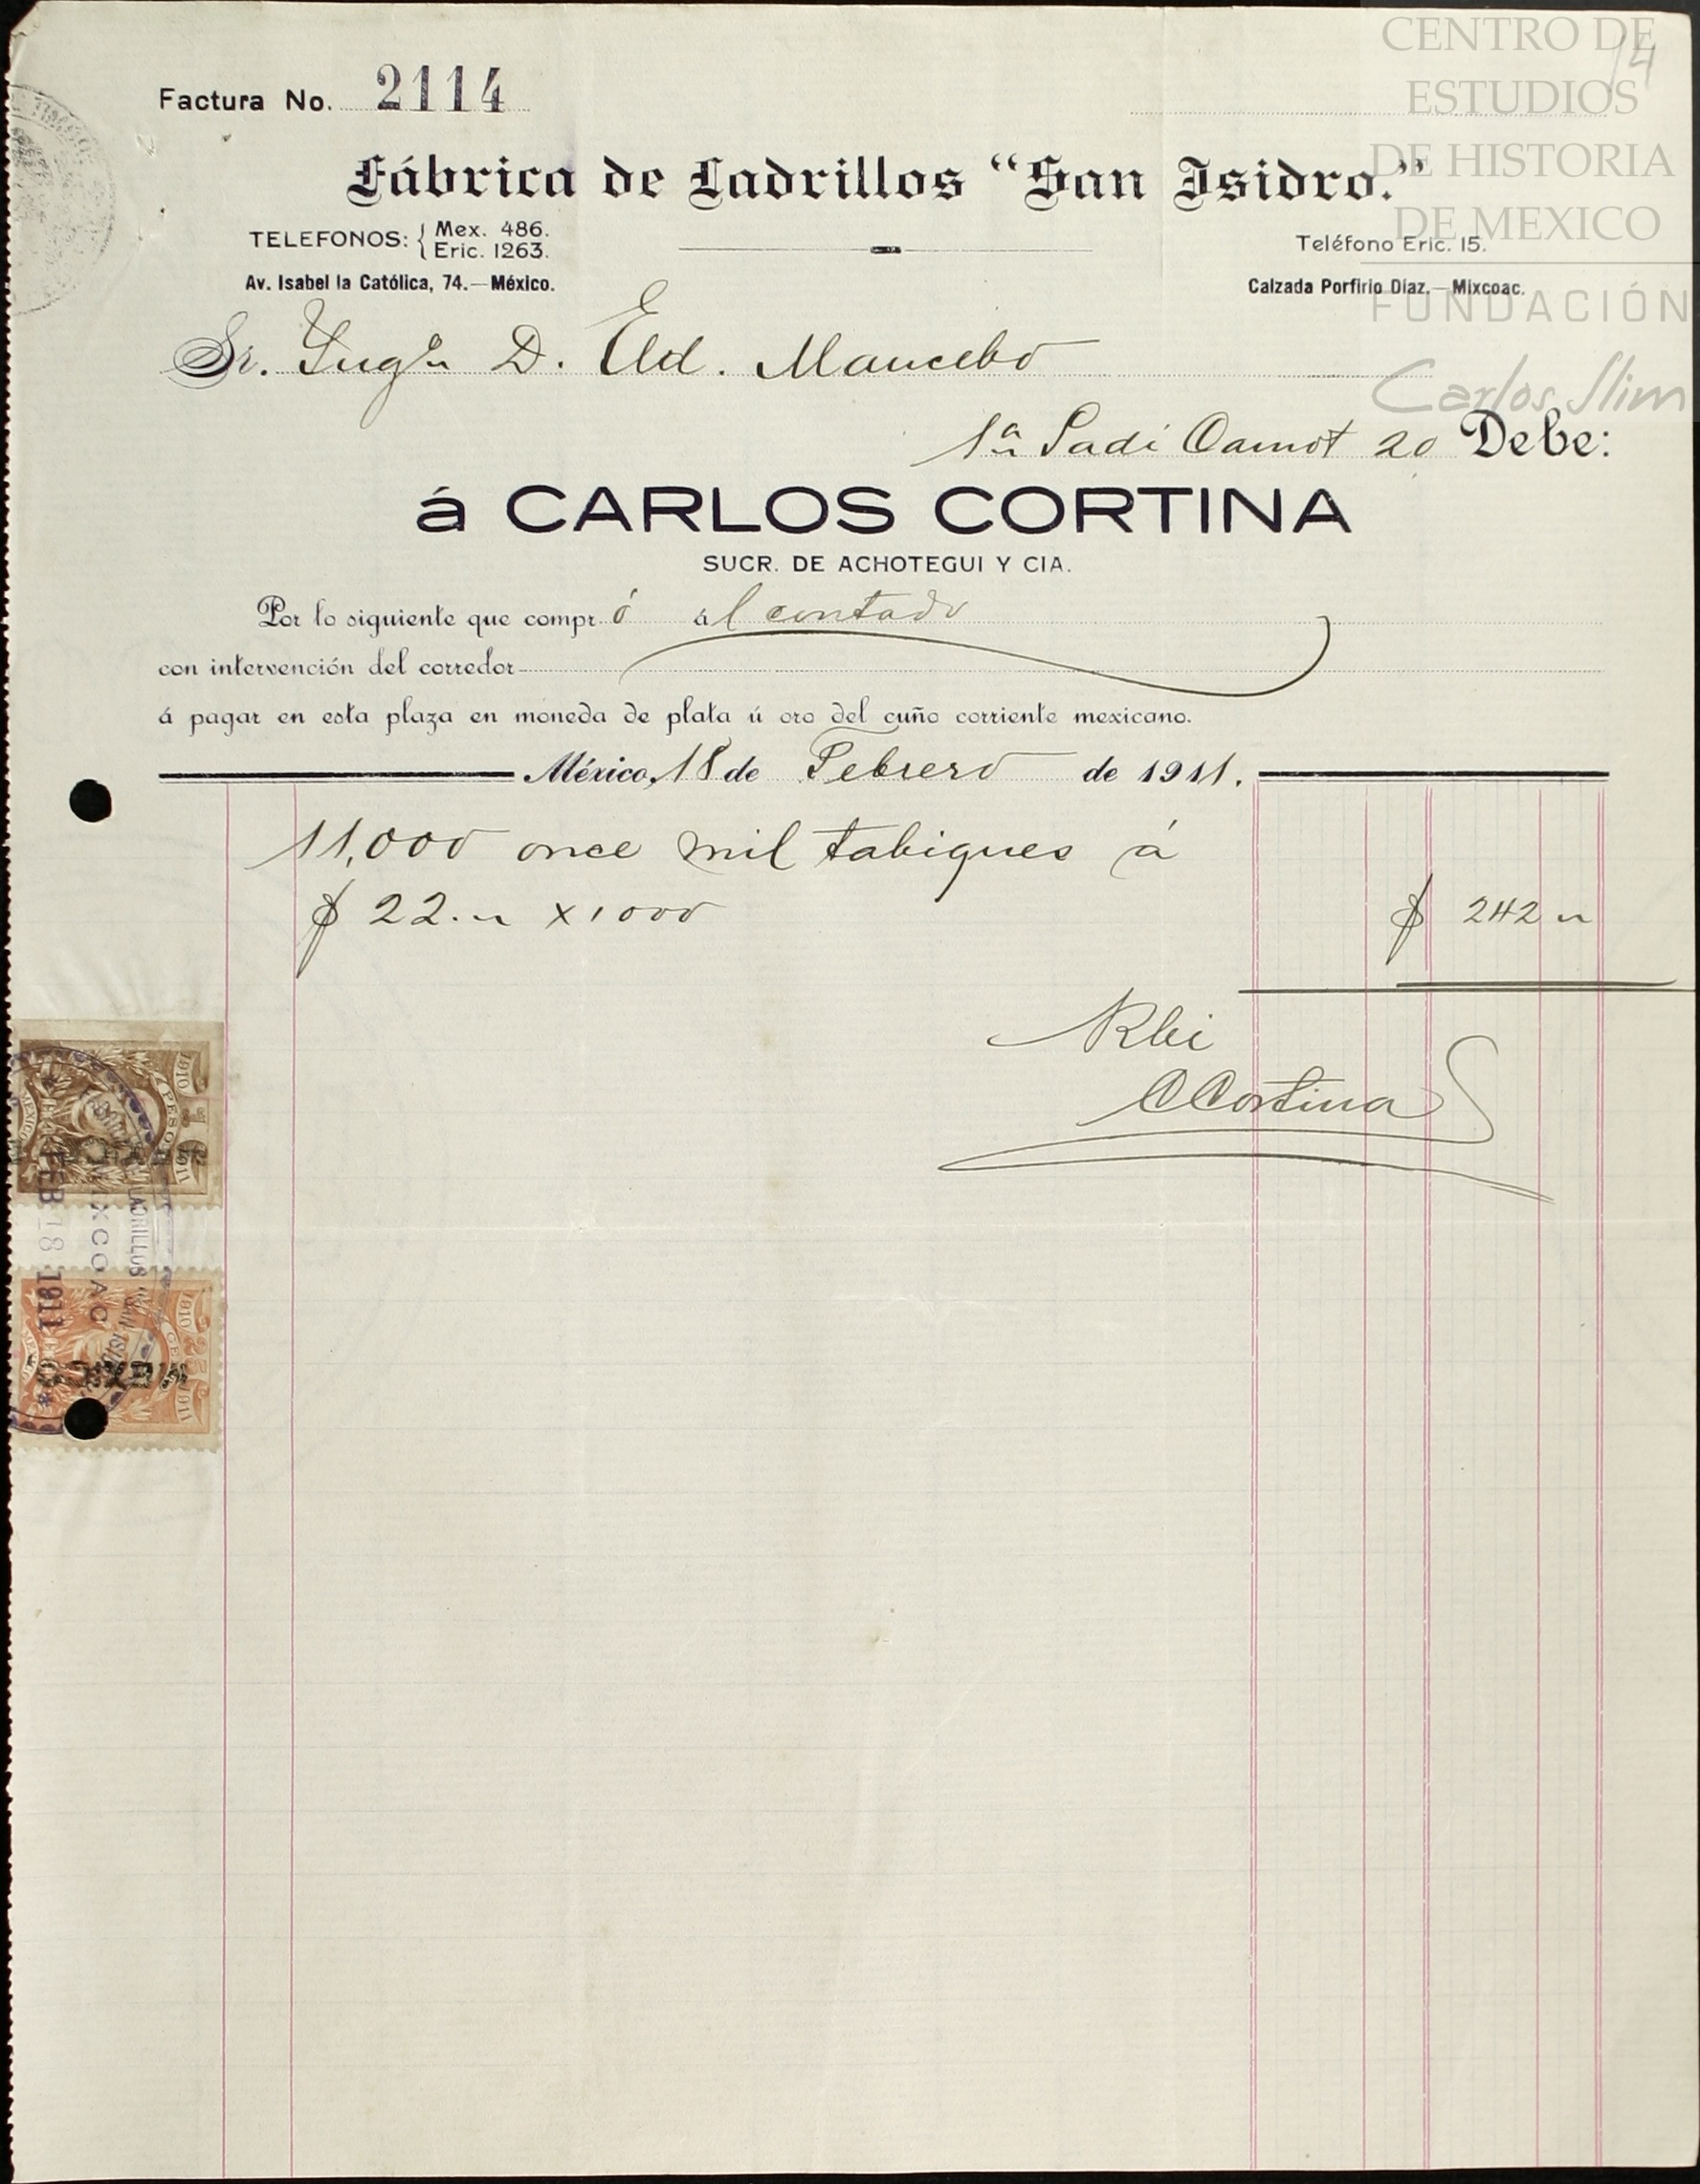 CENTRO DE
ESTUDIOS
DE HISTORIA
DE MEXICO
FUNDACIÓN
Carlos Slim
14
Factura No. 2114
Fábrica de Ladrillos "San Isidro."
TELEFONOS: { Mex. 486.
Eric. 1263.
Teléfono Eric. 15.
Av. Isabel la Católica, 74.—México.
Calzada Porfirio Díaz.—Mixcoac.
Sr. Ingo D. Ed. Mancebo
1a Sadi Carnot 20 Debe:
á CARLOS CORTINA
SUCR. DE ACHOTEGUI Y CIA.
Por lo siguiente que compró al contado
con intervención del corredor
á pagar en esta plaza en moneda de plata ú oro del cuño corriente mexicano.
México, 18 de Febrero de 1911.
11,000 once mil tabiques á
$ 22. x 1000 $ 242
Rbi
CCortina
1910 PESO 1911
LADRILLOS
MIXCOAC
FEB 18 1911
1910 25 1911
MEXICO